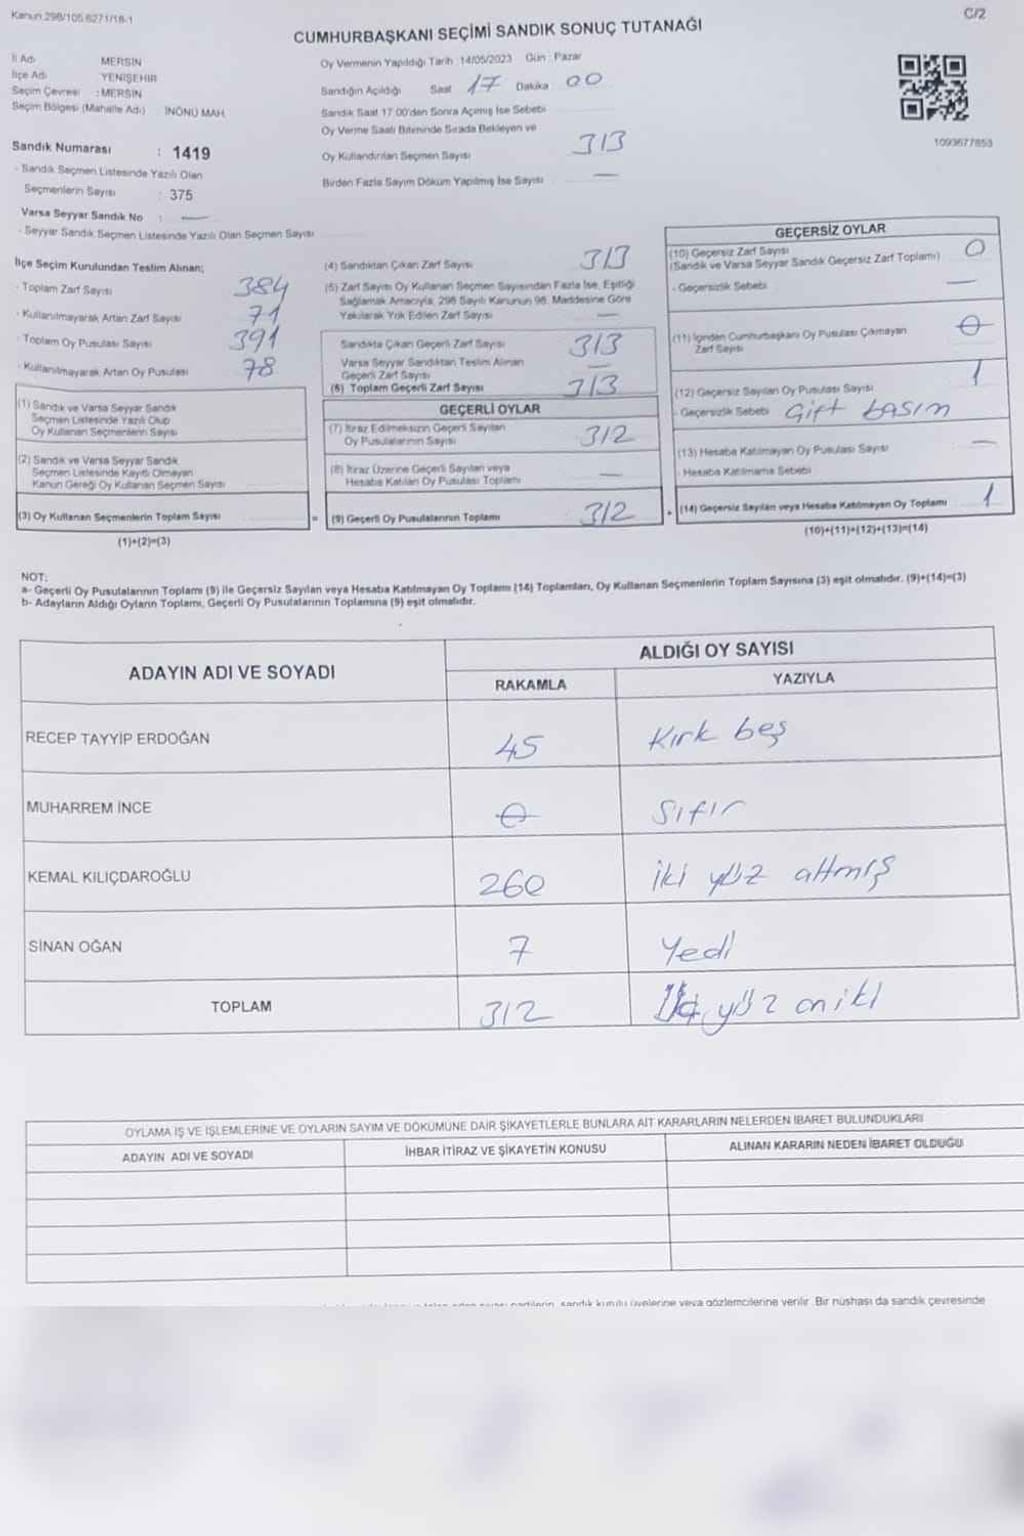 Kanun 298/105.6271/18-1
C/2
CUMHURBAŞKANI SEÇİMİ SANDIK SONUÇ TUTANAĞI
İl Adı MERSİN
İlçe Adı YENİŞEHİR
Seçim Çevresi : MERSİN
Seçim Bölgesi (Mahalle Adı) İNÖNÜ MAH.
Oy Vermenin Yapıldığı Tarih : 14/05/2023 Gün : Pazar
Sandığın Açıldığı Saat 17 Dakika 00
Sandık Saat 17:00'den Sonra Açılmış İse Sebebi
Oy Verme Saati Bitiminde Sırada Bekleyen ve
Oy Kullandırılan Seçmen Sayısı 313
Birden Fazla Sayım Döküm Yapılmış İse Sayısı —
1093677853
Sandık Numarası : 1419
- Sandık Seçmen Listesinde Yazılı Olan
Seçmenlerin Sayısı : 375
Varsa Seyyar Sandık No : —
- Seyyar Sandık Seçmen Listesinde Yazılı Olan Seçmen Sayısı
İlçe Seçim Kurulundan Teslim Alınan;
- Toplam Zarf Sayısı 384
- Kullanılmayarak Artan Zarf Sayısı 71
- Toplam Oy Pusulası Sayısı 391
- Kullanılmayarak Artan Oy Pusulası 78
(1) Sandık ve Varsa Seyyar Sandık
Seçmen Listesinde Yazılı Olup
Oy Kullanan Seçmenlerin Sayısı
(2) Sandık ve Varsa Seyyar Sandık
Seçmen Listesinde Kayıtlı Olmayan
Kanun Gereği Oy Kullanan Seçmen Sayısı
(3) Oy Kullanan Seçmenlerin Toplam Sayısı
(1)+(2)=(3)
(4) Sandıktan Çıkan Zarf Sayısı 313
(5) Zarf Sayısı Oy Kullanan Seçmen Sayısından Fazla İse, Eşitliği
Sağlamak Amacıyla, 298 Sayılı Kanunun 98. Maddesine Göre
Yakılarak Yok Edilen Zarf Sayısı —
Sandıkta Çıkan Geçerli Zarf Sayısı 313
Varsa Seyyar Sandıktan Teslim Alınan
Geçerli Zarf Sayısı —
(6) Toplam Geçerli Zarf Sayısı 313
GEÇERLİ OYLAR
(7) İtiraz Edilmeksizin Geçerli Sayılan
Oy Pusulalarının Sayısı 312
(8) İtiraz Üzerine Geçerli Sayılan veya
Hesaba Katılan Oy Pusulası Toplamı —
= (9) Geçerli Oy Pusulalarının Toplamı 312
GEÇERSİZ OYLAR
(10) Geçersiz Zarf Sayısı 0
(Sandık ve Varsa Seyyar Sandık Geçersiz Zarf Toplamı)
- Geçersizlik Sebebi —
(11) İçinden Cumhurbaşkanı Oy Pusulası Çıkmayan
Zarf Sayısı 0
(12) Geçersiz Sayılan Oy Pusulası Sayısı 1
- Geçersizlik Sebebi Çift basım
(13) Hesaba Katılmayan Oy Pusulası Sayısı —
- Hesaba Katılmama Sebebi
+ (14) Geçersiz Sayılan veya Hesaba Katılmayan Oy Toplamı 1
(10)+(11)+(12)+(13)=(14)
NOT:
a- Geçerli Oy Pusulalarının Toplamı (9) ile Geçersiz Sayılan veya Hesaba Katılmayan Oy Toplamı (14) Toplamları, Oy Kullanan Seçmenlerin Toplam Sayısına (3) eşit olmalıdır. (9)+(14)=(3)
b- Adayların Aldığı Oyların Toplamı, Geçerli Oy Pusulalarının Toplamına (9) eşit olmalıdır.
ADAYIN ADI VE SOYADI
ALDIĞI OY SAYISI
RAKAMLA YAZIYLA
RECEP TAYYİP ERDOĞAN 45 Kırk beş
MUHARREM İNCE 0 Sıfır
KEMAL KILIÇDAROĞLU 260 iki yüz altmış
SİNAN OĞAN 7 Yedi
TOPLAM 312 Üç yüz oniki
OYLAMA İŞ VE İŞLEMLERİNE VE OYLARIN SAYIM VE DÖKÜMÜNE DAİR ŞİKAYETLERLE BUNLARA AİT KARARLARIN NELERDEN İBARET BULUNDUKLARI
ADAYIN ADI VE SOYADI İHBAR İTİRAZ VE ŞİKAYETİN KONUSU ALINAN KARARIN NEDEN İBARET OLDUĞU
partilerin, sandık kurulu üyelerine veya gözlemcilerine verilir. Bir nüshası da sandık çevresinde